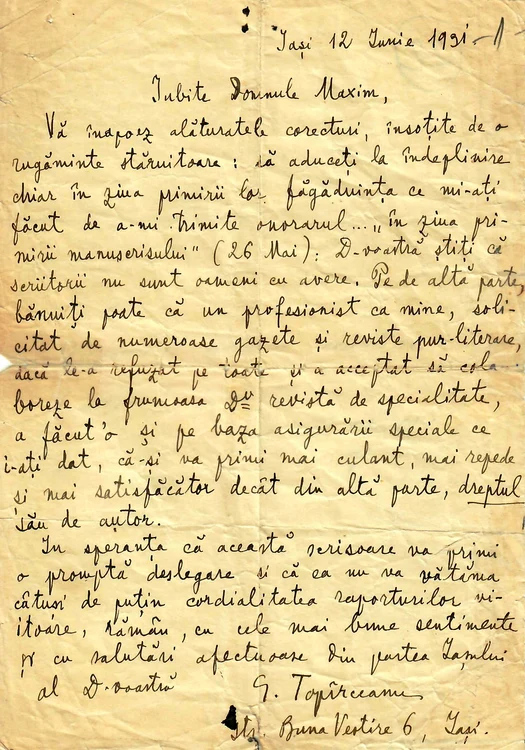 Iași 12 Iunie 1931 - 1
Iubite Domnule Maxim,
Vă înapoez alăturatele corecturi, însoțite de o
rugăminte stăruitoare: să aduceți la îndeplinire
chiar în ziua primirii lor făgăduința ce mi-ați
făcut de a-mi trimite onorarul... „în ziua pri-
mirii manuscrisului" (26 Mai). D-voastră știți că
scriitorii nu sunt oameni cu avere. Pe de altă parte,
bănuiți poate că un profesionist ca mine, soli-
citat de numeroase gazete și reviste pur-literare,
dacă le-a refuzat pe toate și a acceptat să cola-
boreze la frumoasa Dv revistă de specialitate,
a făcut'o și pe baza asigurării speciale ce
i-ați dat, că-și va primi mai culant, mai repede
și mai satisfăcător decât din altă parte, dreptul
său de autor.
In speranța că această scrisoare va primi
o promptă deslegare și că ea nu va vătăma
câtuși de puțin cordialitatea raporturilor vi-
itoare, rămân, cu cele mai bune sentimente
și cu salutări afectuoase din partea Iașului
al D-voastră G. Topîrceanu
str. Buna Vestire 6, Iași.